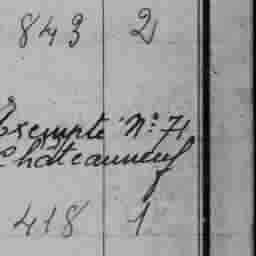 843 2
Exempte N°: 71
Châteauneuf
418 1